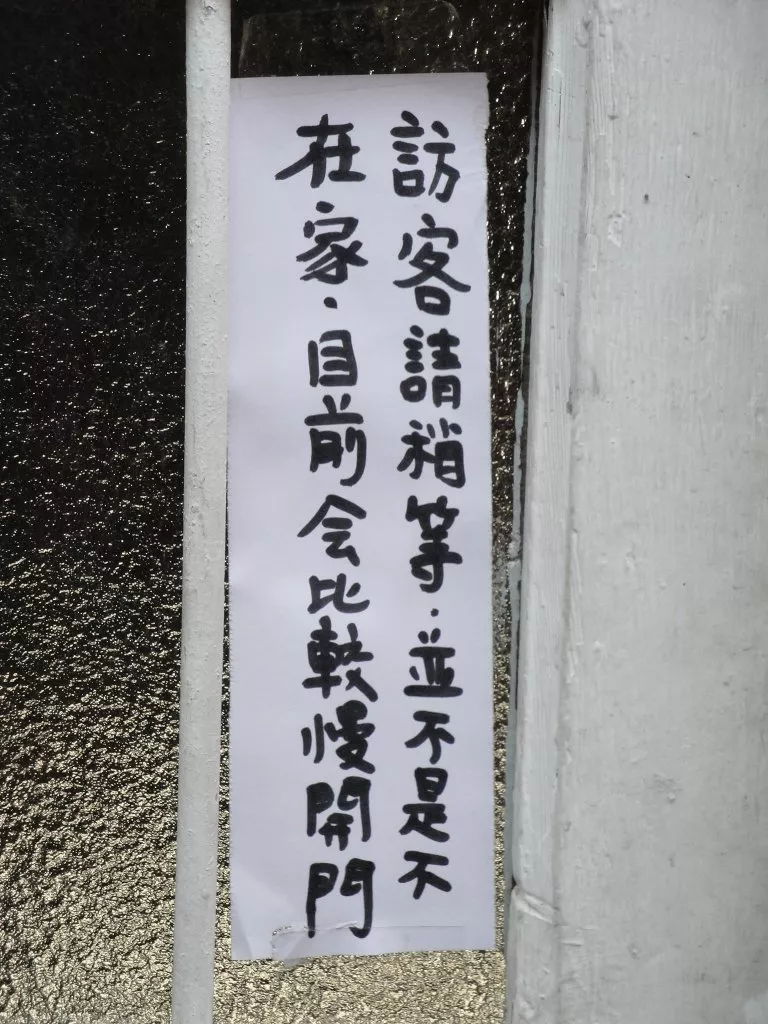 訪客請稍等．並不是不
在家．目前会比較慢開門